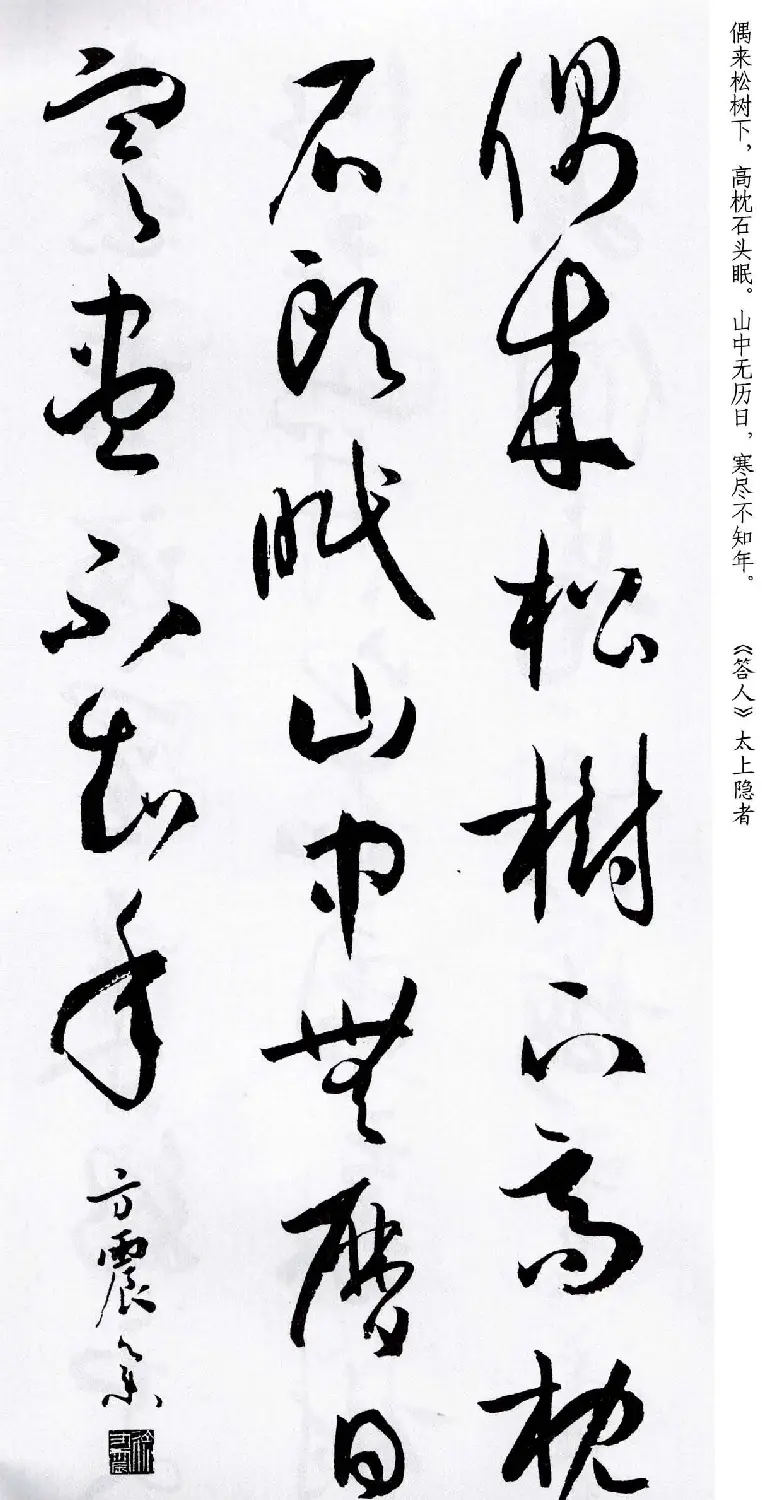 偶来松树下，高枕石头眠。山中无历日，寒尽不知年。 《答人》太上隐者
偶來松樹下高枕
石頭眠山中無曆日
寒盡不知年
方震篆